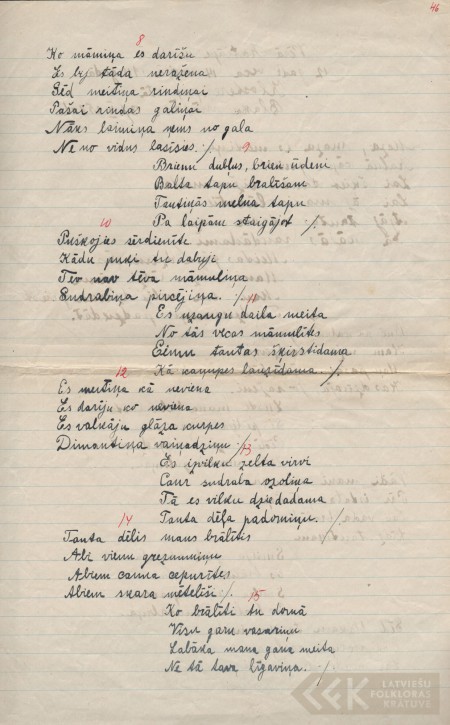 46
8
Ko māmiņa es darīšu
Es bij tāda neražena
Sēd meitiņa rindinai
Pašai rindas galiņai
Nāks laimiņa ņems no gala
Ne no vidus lasīsies ./.
9
Brienu dubļus, brien ūdeni
Balta tapu brālīšam
Tautiņās melna tapu
Pa laipām staigājot ./.
10
Puškojies sērdienīte
Kādu puķi tu dabuji
Tev nav tēva māmuliņa
Sudrabiņa pircējiņa. ./.
11
Es uzaugu daila meita
No tās vecas māmulītes
Eimu tautas šķirstīdama
Kā kaņupes lauzīdama ./.
12
Es meitiņa kā neviena
Es darīju ko neviena
Es valkāju glāža kurpes
Dimantiņa vaiņadziņu ./.
13
Es izvilku zelta virvi
Caur sudraba ozoliņa
Tā es vilku dziedadama
Tauta dēļa padomiņu. ./.
14
Tauta dēlis mans brālītis
Abi vienu greznumiņu
Abiem cauna cepurītes
Abiem skara mētelīši ./.
15
Ko brālīti tu domā
Visu garu vasariņu
Labāka mana gana meita
Ne tā tava līgaviņa. ./.
LATVIEŠU
FOLKLORAS
KRĀTUVE